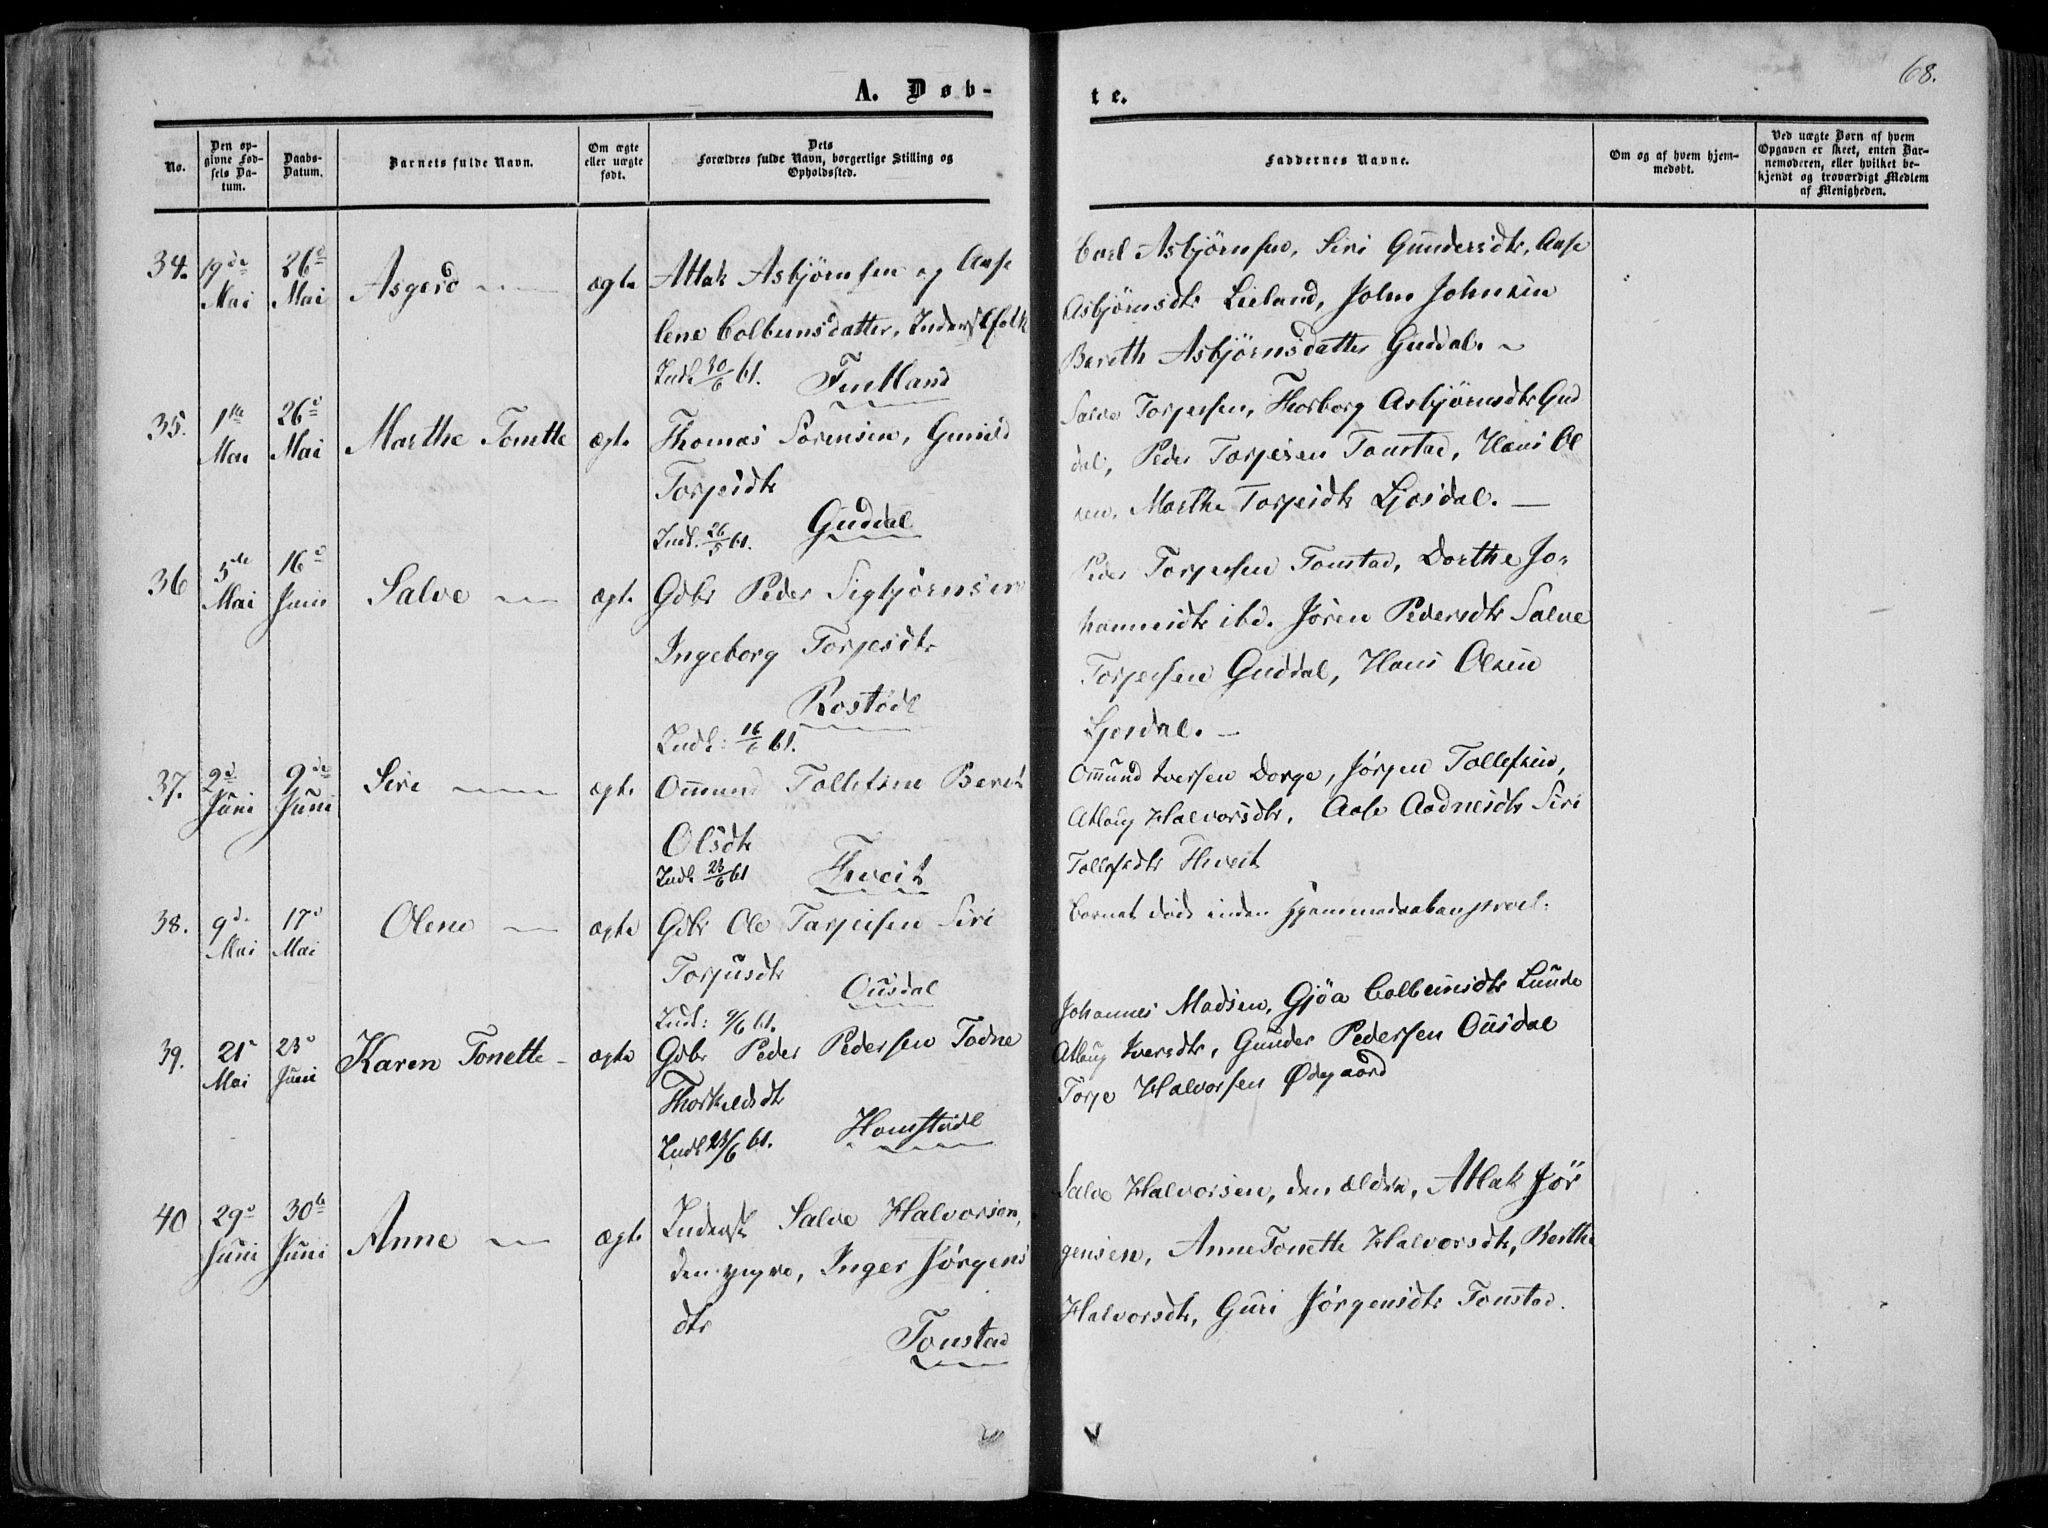 68.
A. Døb-
te.
No.
Den opgivne Fødsels Datum.
Daabs-Datum.
Barnets fulde Navn.
Om ægte eller uægte født.
Dets Forældres fulde Navn, borgerlige Stilling og Opholdssted.
Faddernes Navne.
Om og af hvem hjemmedøbt.
Ved uægte Børn af hvem Opgaven er skeet, enten Barnemoderen, eller hvilket bekjendt og troværdigt Medlem af Menigheden.
34. 19de Mai 26d Mai Asgerd ægte
Atlak Asbjørnsen og Aase
lene Colbensdatter, Inderstfolk
Indl 30/6 61. Fintland
Asbjørnsen, Siri Gundersdtr, Aase
Asbjørnsdtr Lieland, John Johnsen
Bereth Asbjørnsdatter Guddal. ~
35. 1ste Mai 26d Mai Marthe Tonette ægte
Thomas Sørensen, Gunild
Torjesdtr
Indl. 26/5 61. Guddal
Salve Torjersen, Thorborg Asbjørnsdtr Gud
dal, Peder Torjesen Tonstad, Hans Ol
sen, Marthe Torjesdtr Ljosdal. —
36 5de Mai 16d Juni Salve ægte
Gdbr Peder Sigbjørnsen
Ingeborg Torjesdtr
Rostødl
Indl: 16/6 61.
Peder Torjersen Tonstad, Dorthe Jo-
hannesdtr ibd. Jøren Pedersdtr Salve
Torjersen Guddal, Hans Olsen
Ljosdal. —
37. 2d Juni 9de Juni Siri ægte
Ommund Tollefsen Berit
Olsdtr
Indl 23/6 61 Tveit
Ommund Iversen Dorge, Jørgen Tollefsen,
Atlaug Halvorsdtr, Aase Aadnesdtr Siri
Tollefsdtr Tveit
38. 9d. Mai 17d Mai Olene ægte
Gdbr Ole Tarjeisen Siri
Torjusdtr
Ousdal
Indl: 9/6 61.
Barnet døde inden
39. 21d Mai 23d Juni Karen Tonette ægte
Gdbr Peder Pedersen Todne
Thorkeldsdtr
Indl 23/6 61. Homstødl
Johannes Madsen, Gjøa Colbeinsdtr Lunde
Atlaug Iversdtr, Gunder Pedersen Ousdal
Torje Halvorsen Ødegaard
40 29d Juni 30te Juni Anne ægte
Inderst Salve Halvorsen,
den yngre, Inger Jørgens
dtr
Tonstad
Salve Halvorsen, den ældre, Atlak Jør
gensen, Anne Tonette Halvorsdtr, Berthe
Halvorsdtr, Guri Jørgensdtr Tonstad.